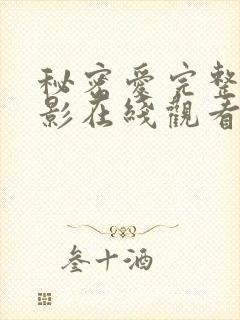 秘密愛完整
影在綫觀看
叁十酒